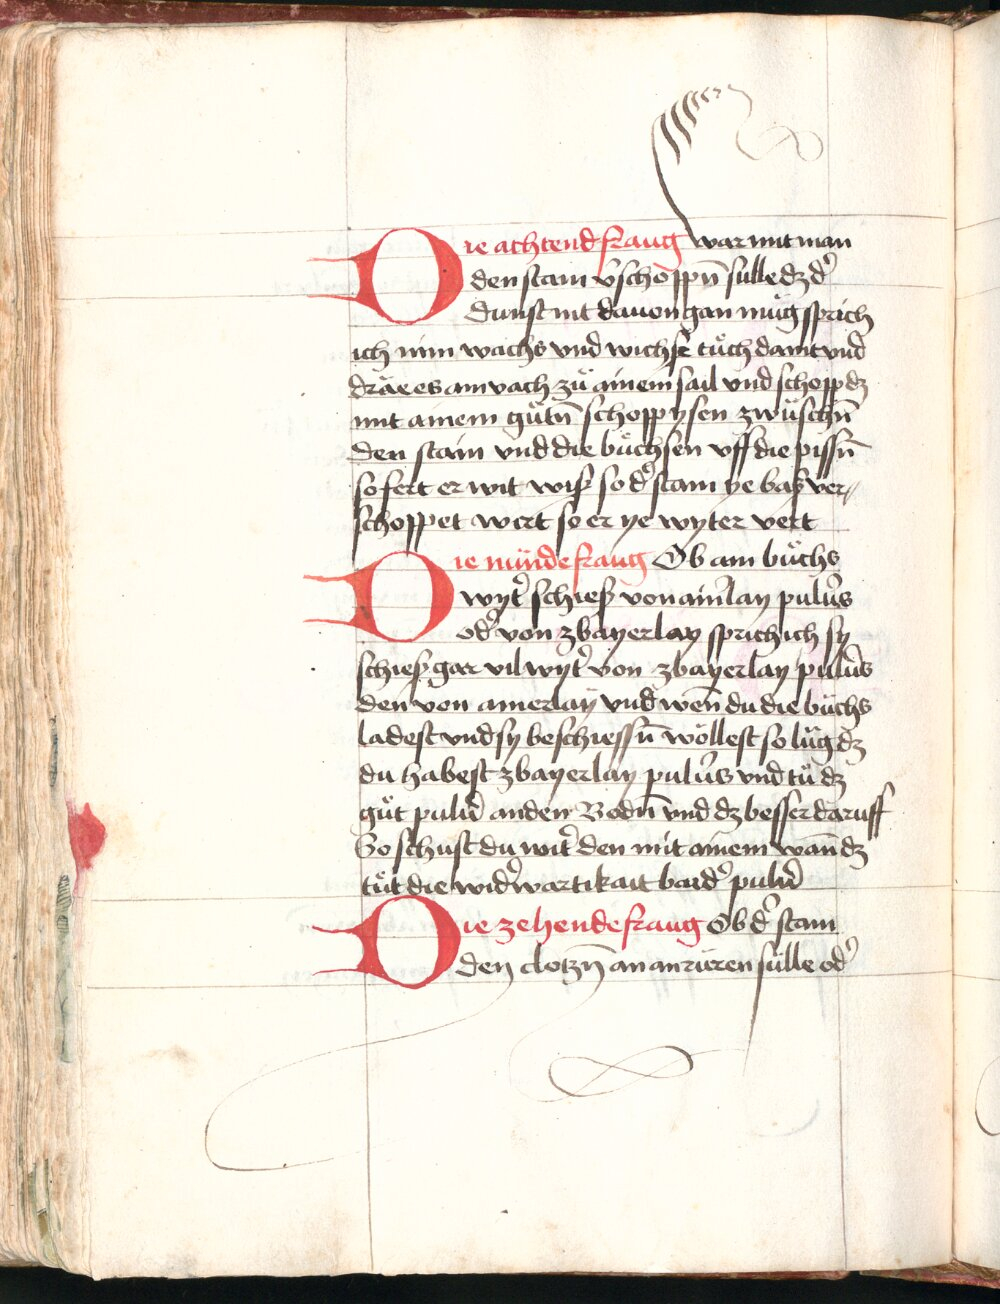 Die achtend fraug war mit man
den stain v̄schoppn̄ sülle dz dˀ
dunst nit dauon gan müg sprich
ich nim wachs vnd wichse tuͦch damit vnd
dräe es amvach zuͦ ainem sail vnd schopp dz
mit ainem guͦtn̄ schoppysen zwüschn̄
den stain vnd die büchsen vff die pissn̄
so fert er wit wiſſ so dˀ stain ye baß ver//
schoppet wirt so er ye wyter vert
Die nünde fraug Ob ain büchs
wytˀ schieß von ainˀlay puluˀs
odˀ von zbayerlay sprich ich sy
schieß gar vil wytˀ von zbayerlay puluˀs
den von ainerlay vnd wen̄ du die büchs
ladest vnd sy beschiessn̄ wöllest so luͦg dz
du habest zbayerlay puluˀs vnd tuͦ dz
guͦt puluˀ an den Bodn̄ vnd dz besser daruff
So schust du witˀ den mit ainem wan̄ dz
tuͦt die widˀwartikait baidˀ puluˀ
Die zehende fraug Ob dˀ stain
den clotzn̄ an an rüren sülle odˀ